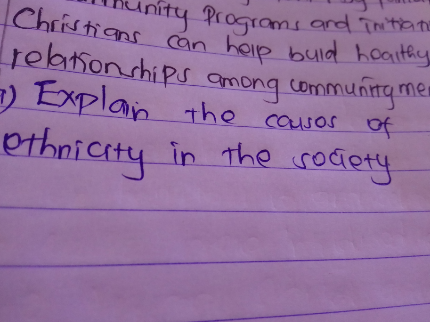 munity Programs and initian
Christians can help build healthy
relationships among community me
1) Explain the causes of
ethnicity in the society